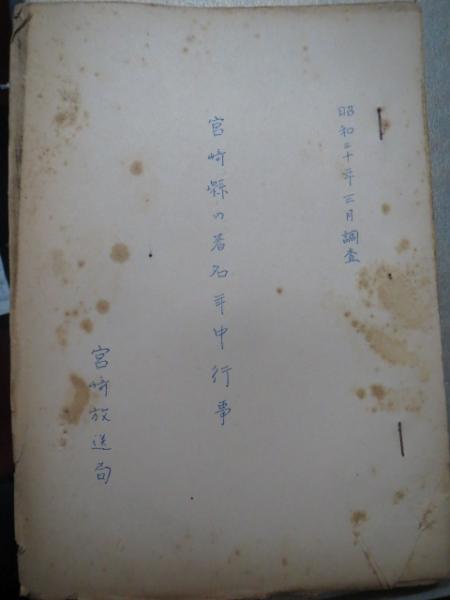 昭和二十年三月調査
宮崎縣の著名年中行事
宮崎放送局